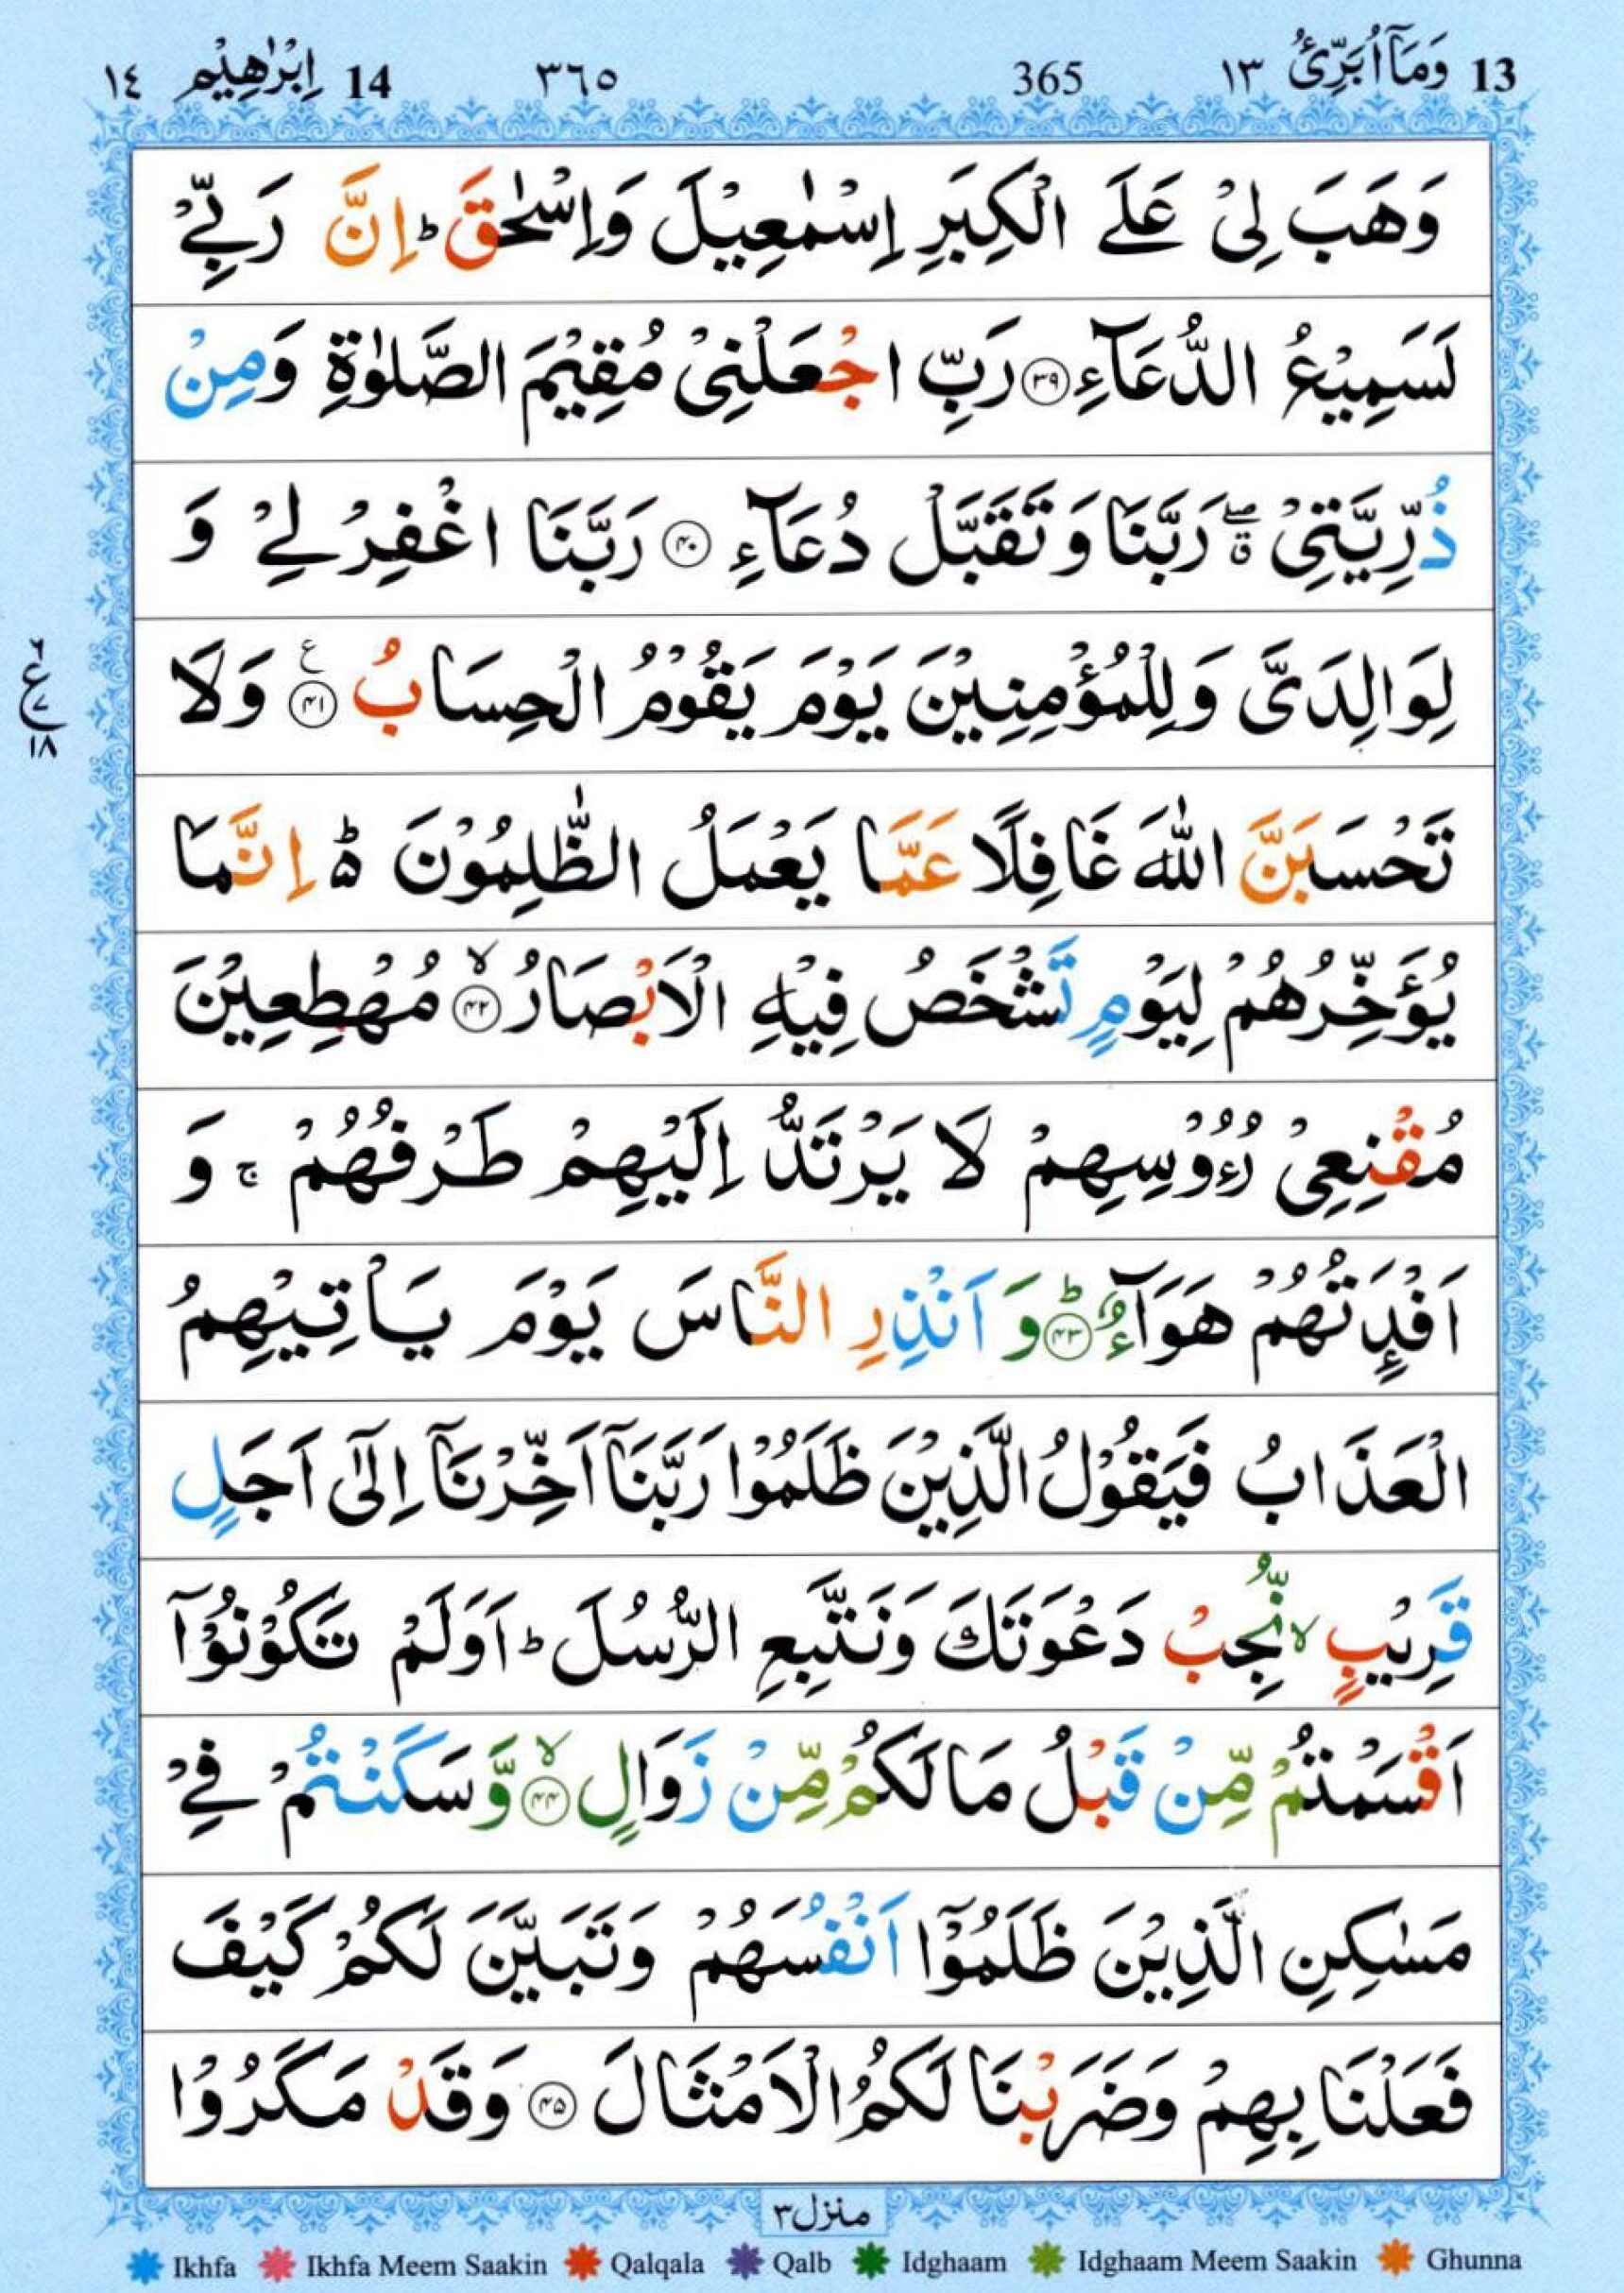 13 وَمَآ اُبَرِّئُ ١٣ 365 ٣٦٥ 14 اِبْرٰهِيْم ١٤
وَهَبَ لِىْ عَلَى الْكِبَرِ اِسْمٰعِيْلَ وَاِسْحٰقَ ؕ اِنَّ رَبِّىْ
لَسَمِيْعُ الدُّعَآءِ ۝۳۹ رَبِّ اجْعَلْنِىْ مُقِيْمَ الصَّلٰوةِ وَمِنْ
ذُرِّيَّتِىْ ۖۗ رَبَّنَا وَتَقَبَّلْ دُعَآءِ ۝۴۰ رَبَّنَا اغْفِرْ لِىْ وَ
لِوَالِدَىَّ وَلِلْمُؤْمِنِيْنَ يَوْمَ يَقُوْمُ الْحِسَابُ ۝۴۱ ع وَلَا
٦ ع ٧ ١٨
تَحْسَبَنَّ اللّٰهَ غَافِلًا عَمَّا يَعْمَلُ الظّٰلِمُوْنَ ۵ؕ اِنَّمَا
يُؤَخِّرُهُمْ لِيَوْمٍ تَشْخَصُ فِيْهِ الْاَبْصَارُ ۙ‏۝۴۲ مُهْطِعِيْنَ
مُقْنِعِىْ رُءُوْسِهِمْ لَا يَرْتَدُّ اِلَيْهِمْ طَرْفُهُمْ ۚ وَ
اَفْـِٕدَتُهُمْ هَوَآءٌ ؕ‏۝۴۳ وَ اَنْذِرِ النَّاسَ يَوْمَ يَاْتِيْهِمُ
الْعَذَابُ فَيَقُوْلُ الَّذِيْنَ ظَلَمُوْا رَبَّنَآ اَخِّرْنَآ اِلٰٓى اَجَلٍ
قَرِيْبٍ ۙ نُّجِبْ دَعْوَتَكَ وَنَتَّبِعِ الرُّسُلَ ؕ اَوَلَمْ تَكُوْنُوْۤا
اَقْسَمْتُمْ مِّنْ قَبْلُ مَا لَكُمْ مِّنْ زَوَالٍ ۙ‏۝۴۴ وَّ سَكَنْتُمْ فِىْ
مَسٰكِنِ الَّذِيْنَ ظَلَمُوْۤا اَنْفُسَهُمْ وَتَبَيَّنَ لَكُمْ كَيْفَ
فَعَلْنَا بِهِمْ وَضَرَبْنَا لَكُمُ الْاَمْثَالَ ۝۴۵ وَقَدْ مَكَرُوْا
منزل ٣
Ikhfa Ikhfa Meem Saakin Qalqala Qalb Idghaam Idghaam Meem Saakin Ghunna